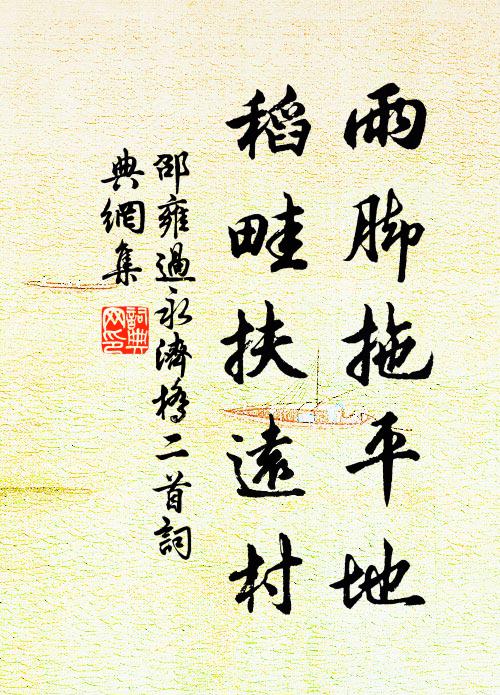 雨脚拖平地
稻畦扶遠村
邵雍過永濟橋二首詞
典網集
詞典
网印